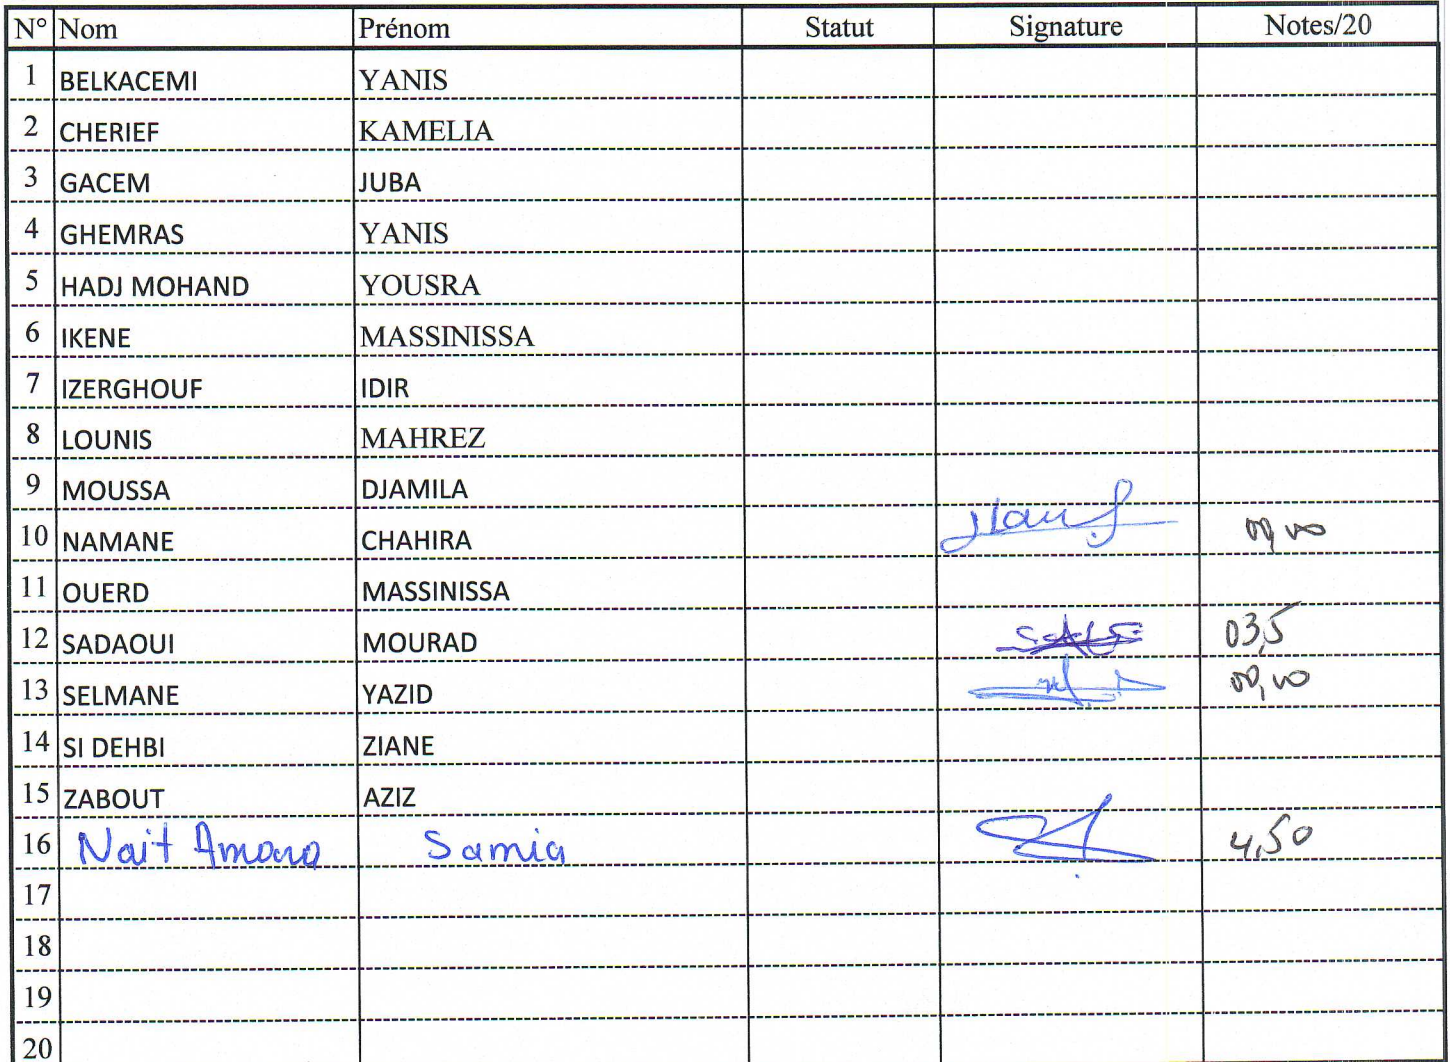 N° Nom Prénom Statut Signature Notes/20
1 BELKACEMI YANIS
2 CHERIEF KAMELIA
3 GACEM JUBA
4 GHEMRAS YANIS
5 HADJ MOHAND YOUSRA
6 IKENE MASSINISSA
7 IZERGHOUF IDIR
8 LOUNIS MAHREZ
9 MOUSSA DJAMILA
10 NAMANE CHAHIRA
11 OUERD MASSINISSA
12 SADAOUI MOURAD 03,5
13 SELMANE YAZID
14 SI DEHBI ZIANE
15 ZABOUT AZIZ
16 Nait Amara Samia 4,50
17
18
19
20